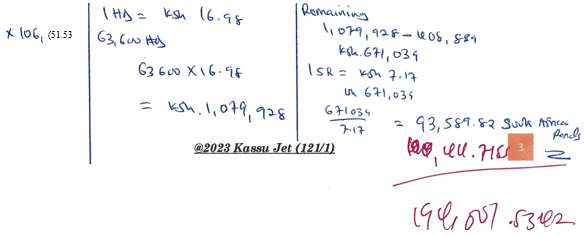 × 106, (51.53
1 HD = Ksh 16.98
63,600 HD
63600 × 16.98
= Ksh. 1,079,928
Remaining
1,079,928 – 408,889
Ksh. 671,039
1 SR = Ksh 7.17
671,039
671039
7.17
= 93,589.82 South African
Rands
3
@2023 Kassu Jet (121/1)